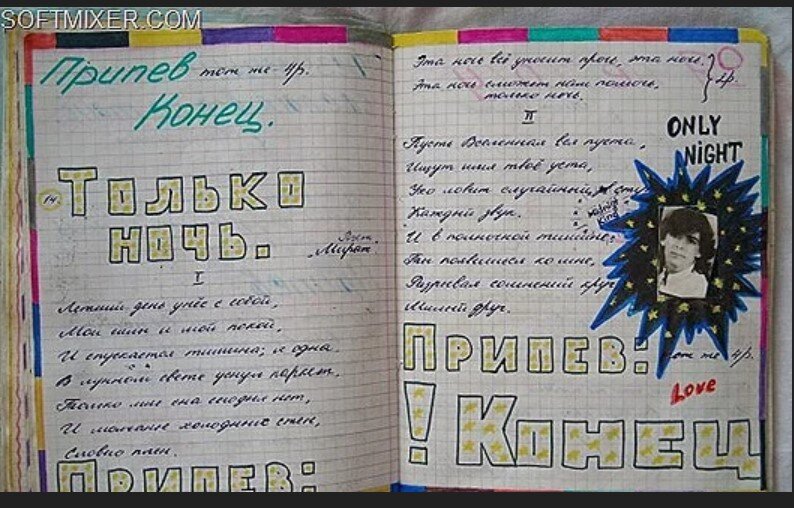 SOFTMIXER.COM
Припев тот же - 4р.
Конец.
14. Только
ночь.
"Мираж"
I
Летний день унёс с собой,
Мой шик и мой покой,
И спускается тишина; я одна.
В лунном свете уснул паркет,
Только мне сна сегодня нет,
И молчанье холодных стен,
Словно плен.
Припев:
Эта ночь всё уносит прочь, эта ночь.
Эта ночь сможет нам помочь,
только ночь.
2р.
II
Пусть Вселенная вся пуста,
Ищут имя твоё уста,
Ухо ловит случайный сту
Каждый звук.
И в полночной тишине,
Ты появишься ко мне,
Разрывая сомнений круг
Милый друг.
ONLY
NIGHT
Припев: тот же 4р.
Love
! Конец